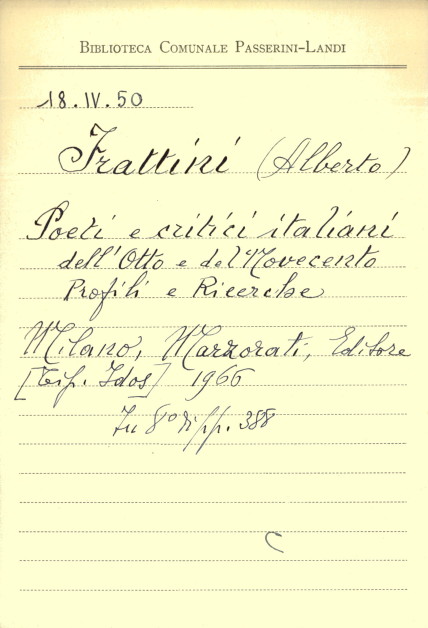 BIBLIOTECA COMUNALE PASSERINI-LANDI
18.IV.50
Frattini (Alberto)
Poeti e critici italiani
dell'Otto e del Novecento
Profili e Ricerche
Milano, Marzorati, Editore
[Tip. Idos] 1966
In 8° di pp. 388